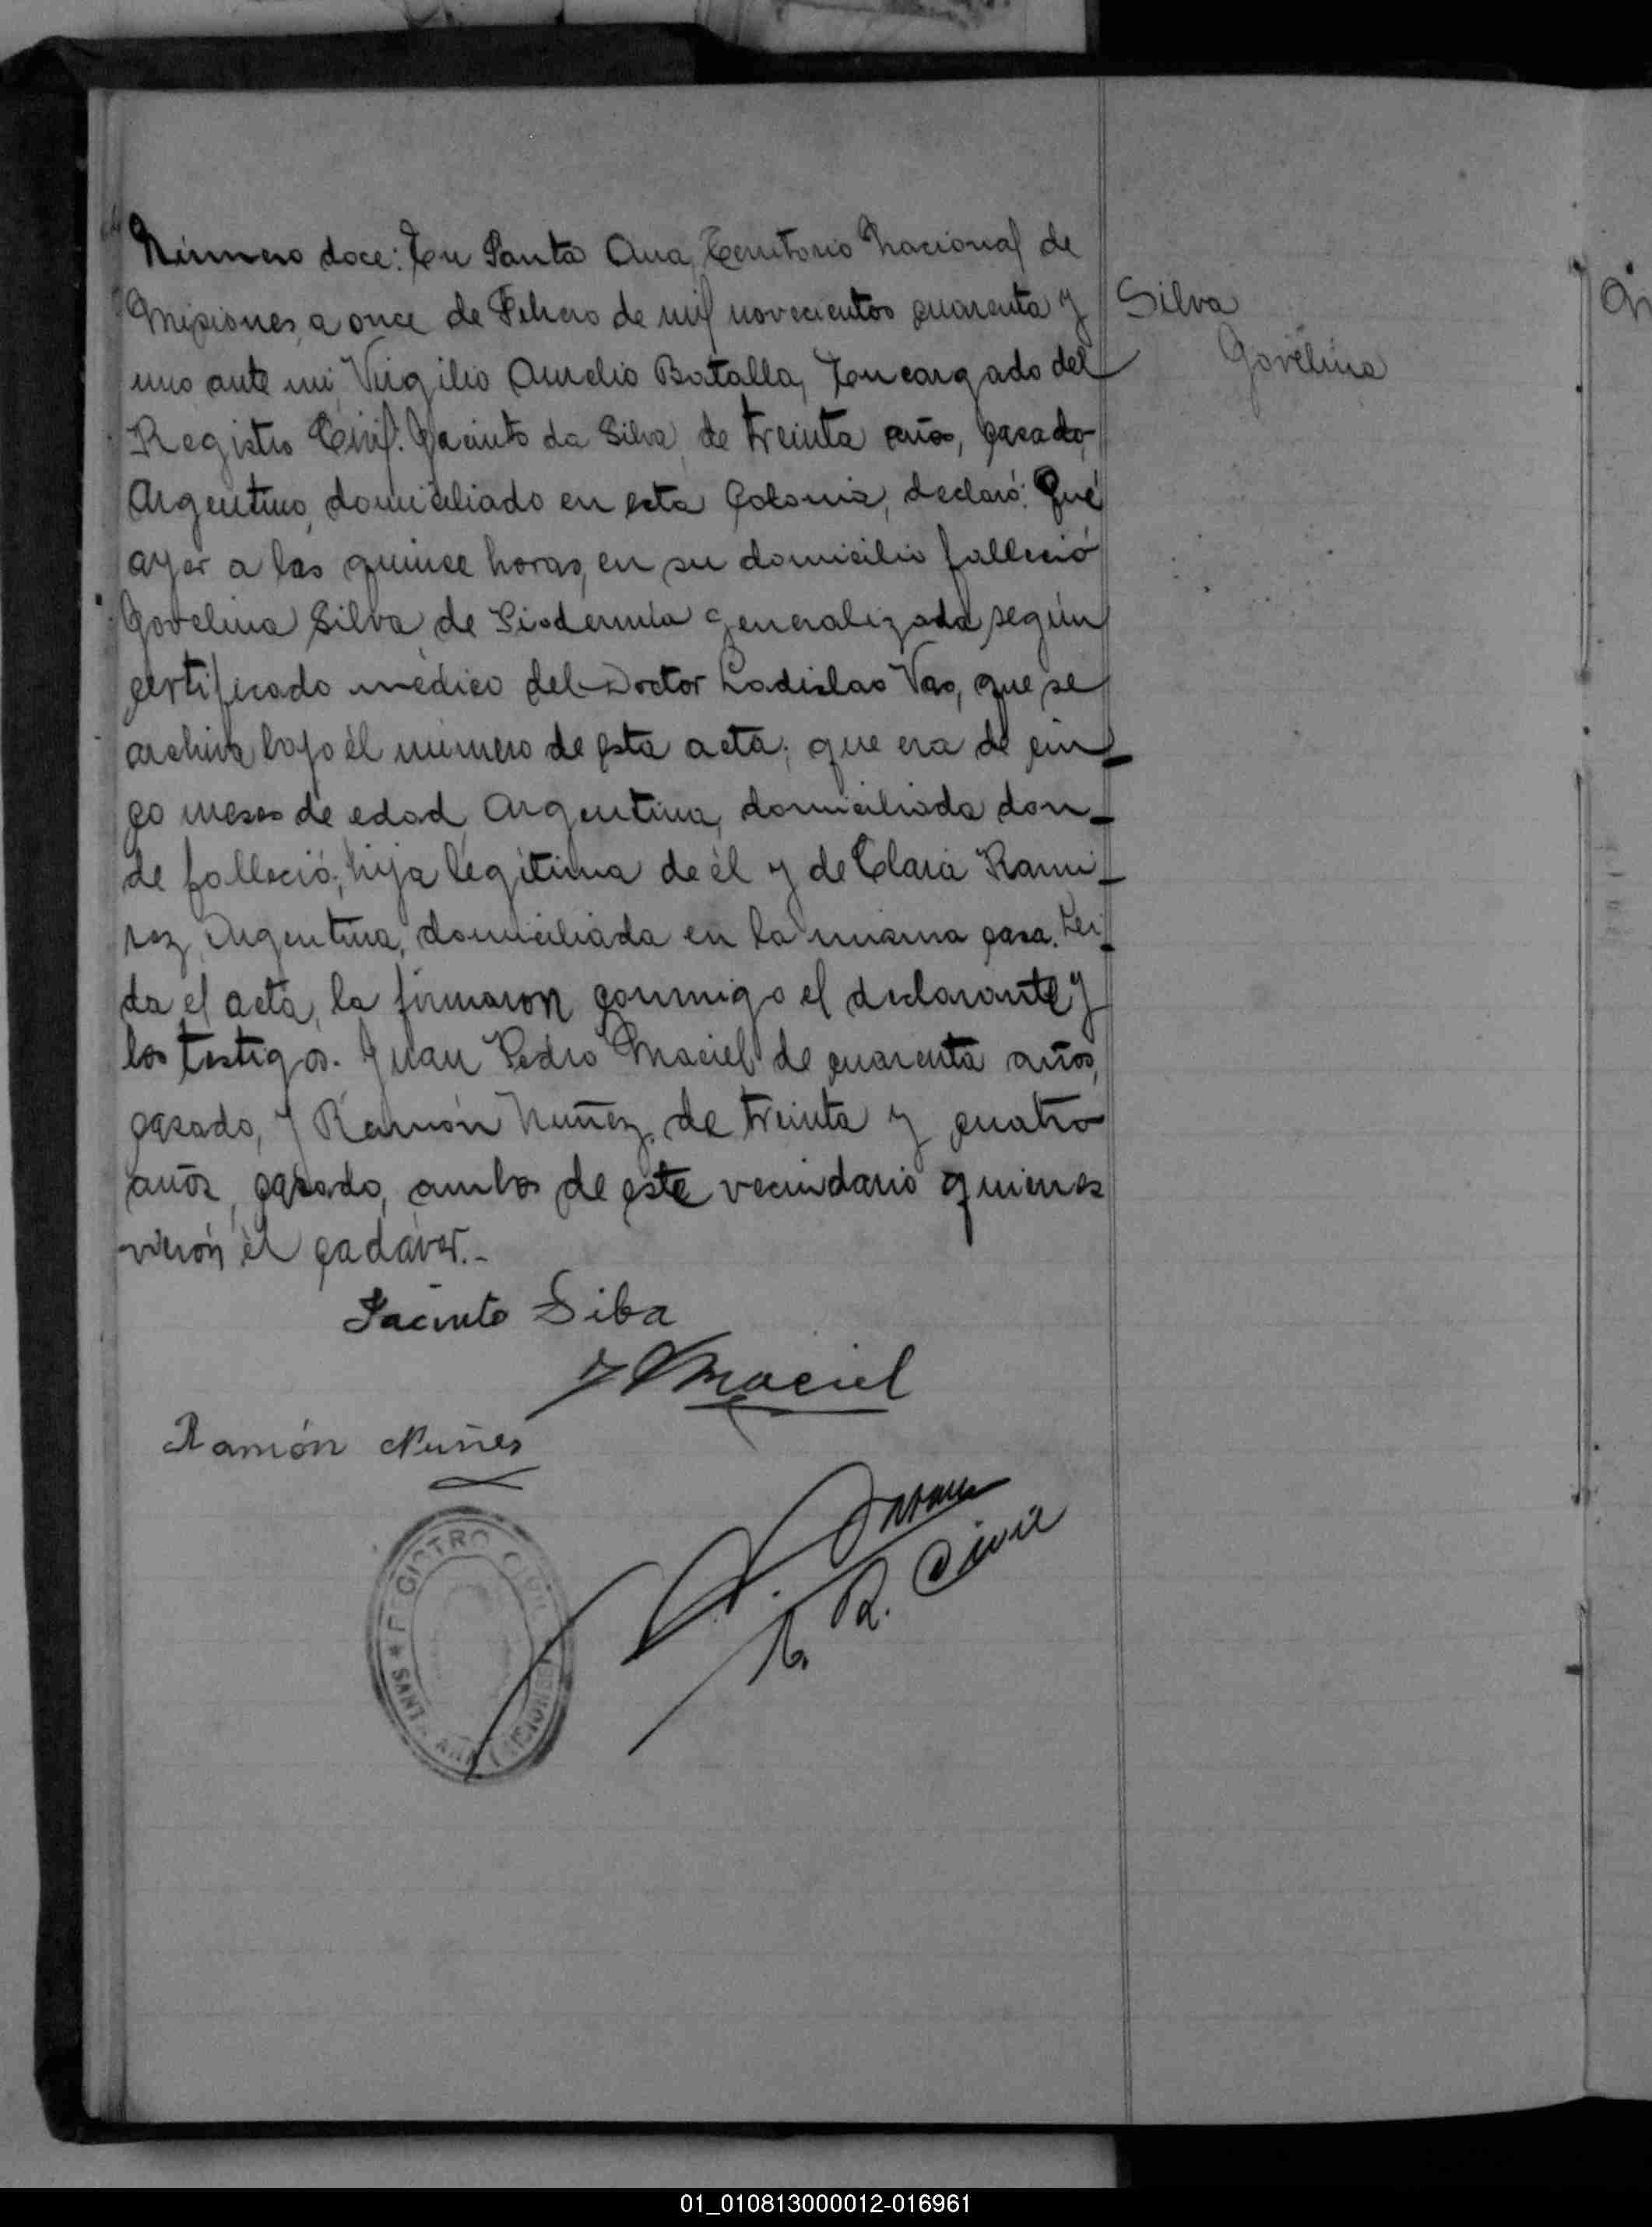 Número doce: En Santa Ana, Territorio Nacional de
Misiones, a once de Febrero de mil novecientos cuarenta y
uno ante mi, Virgilio Aurelio Batalla, Encargado del
Registro Civil: Jacinto da Silva, de treinta años, casado,
Argentino, domiciliado en esta Colonia, declaró: Que
ayer a las quince horas, en su domicilio falleció
Govelina Silva, de Piodermia generalizada, según
certificado médico del Doctor Ladislao Vas, que se
archiva bajo el número de esta acta; que era de cin-
co meses de edad, Argentina, domiciliada don-
de falleció; hija legítima de él y de Clara Rami-
rez, Argentina, domiciliada en la misma casa. Lei-
da el acta, la firmaron conmigo el declarante y
los testigos. Juan Pedro Maciel de cuarenta años,
casado, y Ramón Nuñez, de treinta y cuatro
años, casado, ambos de este vecindario quienes
vieron el cadáver.-
Jacinto Silba
J Maciel
Ramón Nuñes
R. Civil
REGISTRO CIVIL
SANTA ANA (MISIONES)
Silva
Govelina
01_010813000012-016961